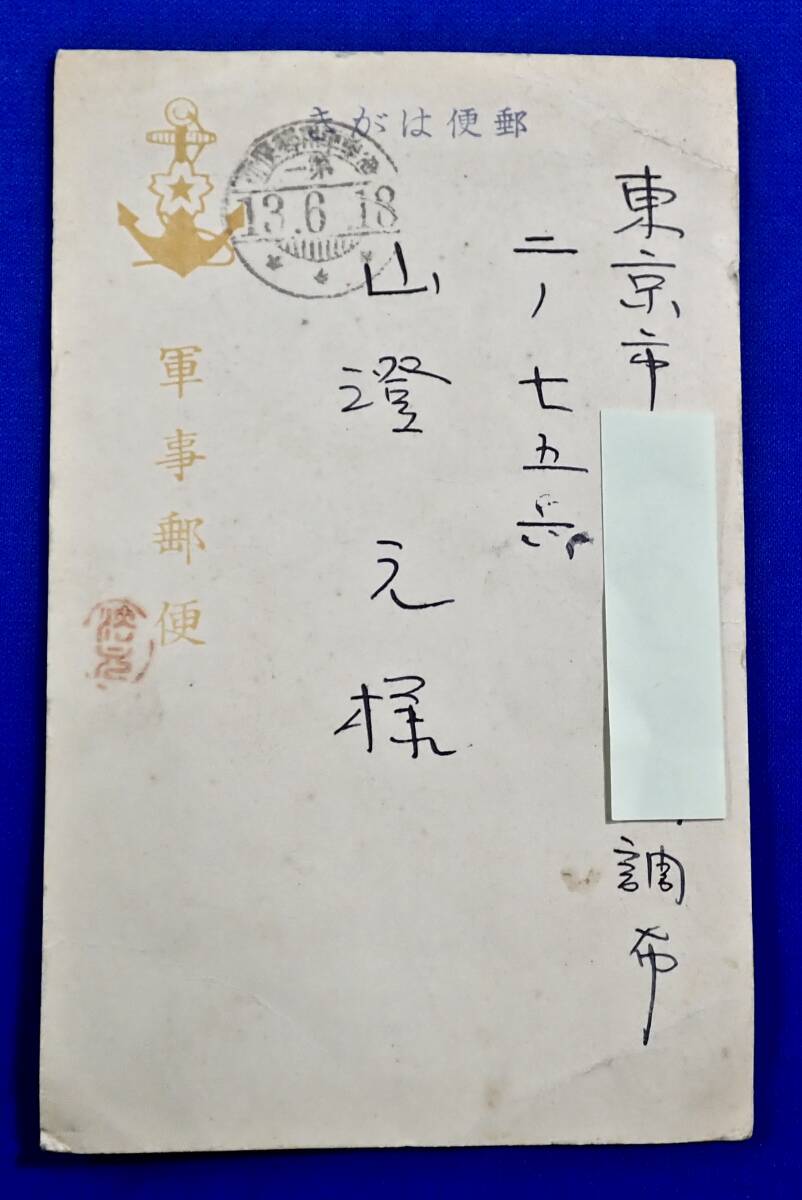 郵便はがき
東京市
調布
二ノ七五六
山澄元様
13.6.18
軍事郵便